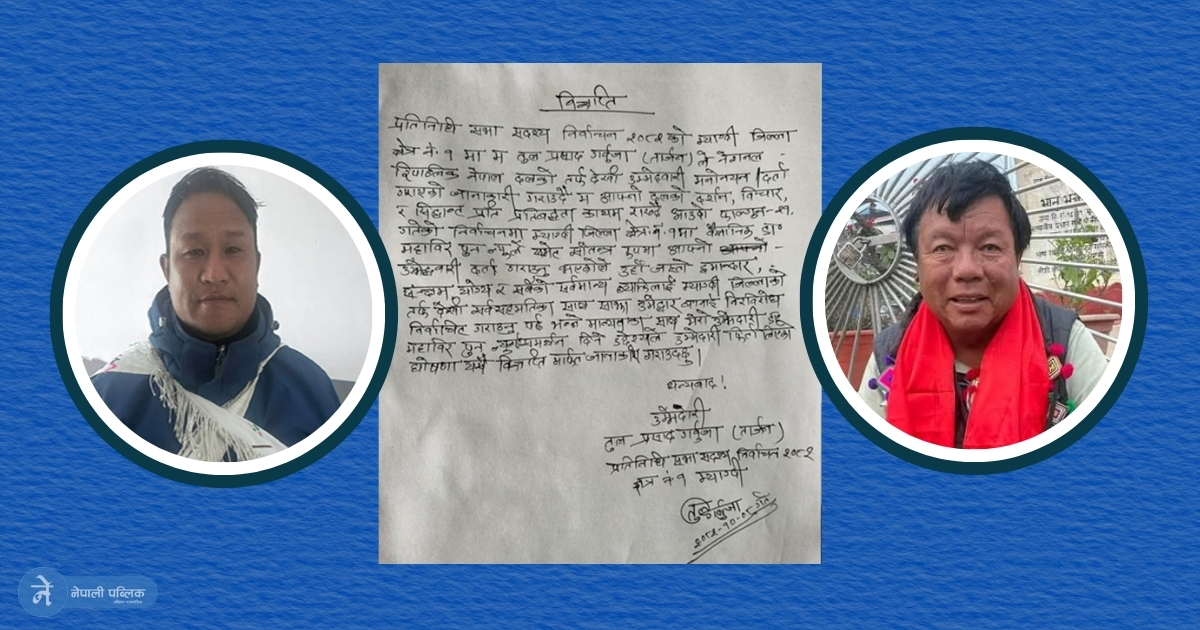 विज्ञप्ति
प्रतिनिधी सभा सदस्य निर्वाचन २०८२ को म्याग्दी जिल्ला
क्षेत्र नं. १ मा म तुल प्रसाद गर्बुजा (तार्जन) ले नेशनल
रिपब्लिक नेपाल दलको तर्फ देखी उम्मेदवारी मनोनयन / दर्ता
गराएको जानाकारी गराउदै म आफ्नो दलको दर्शन, विचार,
र सिद्धान्त प्रति प्रतिवद्धता कायम राख्दै आउदो फाल्गुन-२१
गतेको निर्वाचनमा म्याग्दी जिल्ला क्षेत्र नं. १ मा बैज्ञानिक डा॰
महाविर पुन ज्यूले समेत स्वतन्त्र रुपमा आफ्नो
उम्मेदवारी दर्ता गराउनु भएकोले उहाँ जस्तो इमान्दार,
योग्य र सबैको सर्वमान्य व्यक्तिलाई म्याग्दी जिल्लाको
तर्फ देखी सर्वसहमतिका साथ साझा उमेद्वार बनाई निरविरोध
निर्वाचित गराइनु पर्छ भन्ने मान्यताका साथ मेरो उमेदारी डा॰
महाविर पुन ज्यूलाई समर्थन दिने उदेश्यले उम्मेदारी फिर्ता लिएको
घोषणा यसै विज्ञप्ति मार्फत जानाकारी गराउदछु।
धन्यवाद!
उमेदारी
तुल प्रसाद गर्बुजा (तार्जन)
प्रतिनिधी सभा सदस्य निर्वाचन २०८२
क्षेत्र नं १ म्याग्दी
गर्बुजा
२०८२-१०-०८ गते
भान
ने नेपाली पब्लिक